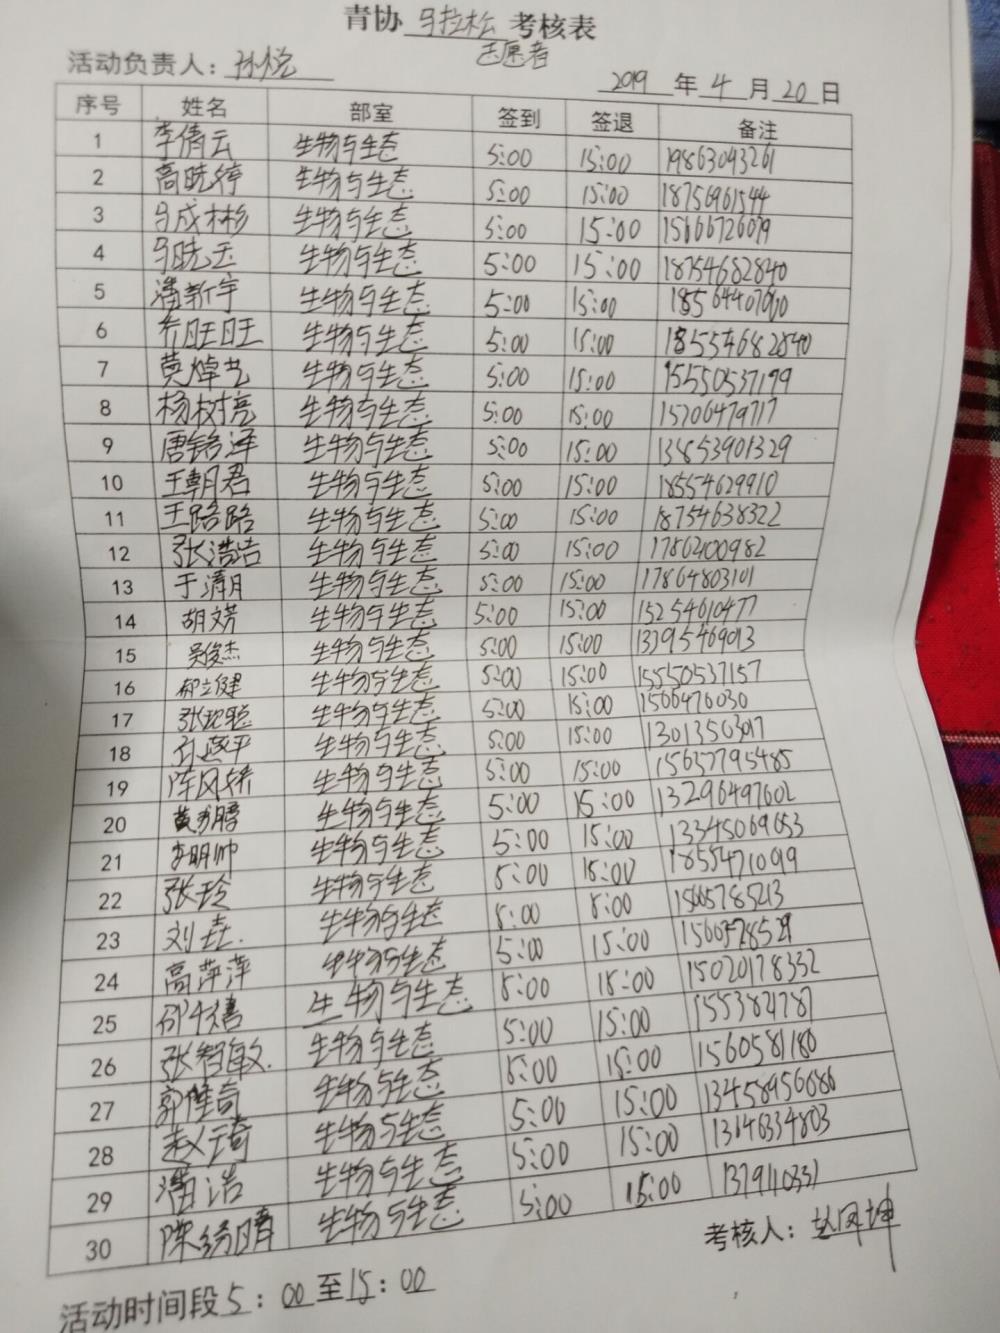 青协 马拉松 考核表
志愿者
活动负责人：孙悦
2019 年 4 月 20 日
序号 姓名 部室 签到 签退 备注
1 李倩云 生物与生态 5:00 15:00 19863043261
2 高晓婷 生物与生态 5:00 15:00 18756961544
3 马成彬彬 生物与生态 5:00 15:00 15666726079
4 马晓玉 生物与生态 5:00 15:00 18754682840
5 潘新宇 生物与生态 5:00 15:00
6 乔旺旺 生物与生态 5:00 15:00 18554682840
7 生物与生态 5:00 15:00 15550537199
8 杨树亮 生物与生态 5:00 15:00 15706479717
9 唐铭泽 生物与生态 5:00 15:00 13853901329
10 王朝君 生物与生态 5:00 15:00 18554629910
11 王路路 生物与生态 5:00 15:00 18754638322
12 张浩洁 生物与生态 5:00 15:00 17862100982
13 于清月 生物与生态 5:00 15:00 17864803101
14 胡文芳 生物与生态 5:00 15:00 15254610477
15 吴俊杰 生物与生态 5:00 15:00 13395469013
16 郁立健 生物与生态 5:00 15:00 15550537157
17 生物与生态 5:00 15:00 1566476030
18 生物与生态 5:00 15:00 13013563017
19 陈风娇 生物与生态 5:00 15:00 15637795485
20 生物与生态 5:00 15:00 13296497602
21 李明帅 生物与生态 5:00 15:00 13345069053
22 张玲 生物与生态 5:00 15:00 18554721099
23 刘垚. 生物与生态 8:00 8:00 15665785213
24 高萍萍 生物与生态 5:00 15:00 1560528529
25 生物与生态 8:00 18:00 15020178332
26 张智敏. 生物与生态 5:00 15:00
27 郭佳奇 生物与生态 8:00 15:00 1560581180
28 赵琦 生物与生态 5:00 15:00 13458956686
29 潘浩 生物与生态 5:00 15:00 13646334803
30 陈绣晴 生物与生态 5:00 15:00
考核人：赵凤坤
活动时间段 5：00 至 15：00